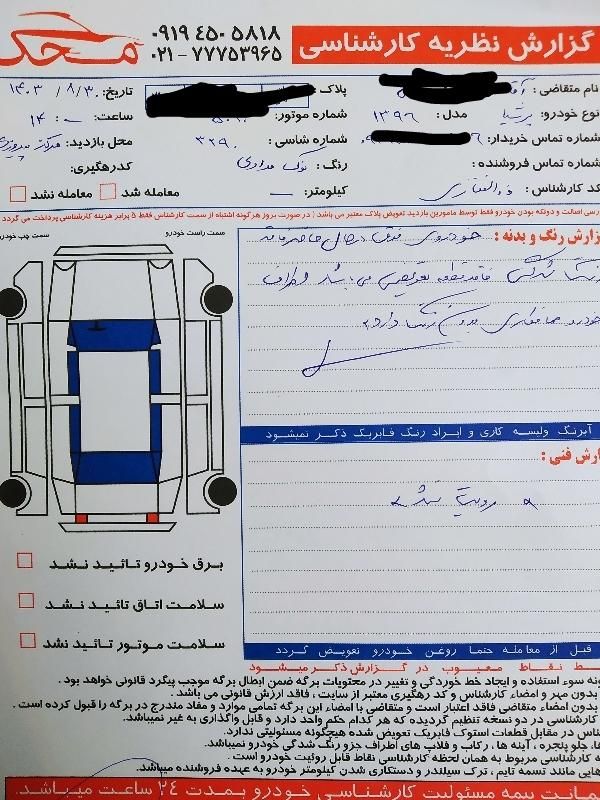 گزارش نظریه کارشناسی
۰۹۱۹ ۴۵۰ ۵۸۱۸
۰۲۱ - ۷۷۷۵۳۹۶۵
محک
نام متقاضی :
پلاک :
تاریخ: ۱۴۰۳/۸/۳۰
نوع خودرو: پرشیا مدل : ۱۳۹۶
شماره موتور:
ساعت: ۱۴
شماره تماس خریدار:
شماره شاسی : ۳۲۹۰
محل بازدید:
شماره تماس فروشنده :
رنگ : نوک مدادی
کدرهگیری:
کد کارشناس : ذوالفقاری
کیلومتر: —
معامله شد
معامله نشد
رسی اصالت و دوتکه بودن خودرو فقط توسط مامورین بازدید تعویض پلاک معتبر می باشد ( در صورت بروز هر گونه اشتباه از سمت کارشناس فقط ۵ برابر هزینه کارشناسی پرداخت می گردد
سمت راست خودرو
سمت چپ خودرو
زارش رنگ و بدنه : خودروی فوق الحال حاضر فاقد
رنگ شدگی فاقد قطعه تعویضی می باشد اطراف
خودرو صافکاری بدون رنگ دارد
آبرنگ ولیسه کاری و ایراد رنگ فابریک ذکر نمیشود
ارش فنی :
رویت نشد
برق خودرو تائید نشد
سلامت اتاق تائید نشد
سلامت موتور تائید نشد
قبل از معامله حتما روغن خودرو تعویض گردد
قط نقاط معیوب در گزارش ذکر میشود
ونه سوء استفاده و ایجاد خط خوردگی و تغییر در محتویات برگه ضمن ابطال برگه موجب پیگرد قانونی خواهد بود .
بدون مهر و امضاء کارشناس و کد رهگیری معتبر از سایت ، فاقد ارزش قانونی می باشد .
بدون امضاء متقاضی فاقد اعتبار است و متقاضی با امضاء این برگه تمامی موارد و مفاد مندرج در برگه را قبول کرده است .
کارشناسی در دو نسخه تنظیم گردیده که هر کدام حکم واحد دارد و قابل واگذاری به غیر نمیباشد.
ناس در مقابل قطعات استوک فابریک تعویض شده هیچگونه مسئولیتی ندارد.
ها، جلو پنجره ، آینه ها ، رکاب و فلاپ های اطراف جزو رنگ شدگی خودرو نمیباشد.
ه کارشناسی مربوط به همان لحظه کارشناسی نقاط قابل روئیت خودرو است .
هایی مانند تسمه تایم ، ترک سیلندر و دستکاری شدن کیلومتر خودرو به عهده فروشنده میباشد.
ضمانت بیمه مسئولیت کارشناسی خودرو بمدت ۲۴ ساعت میباشد.